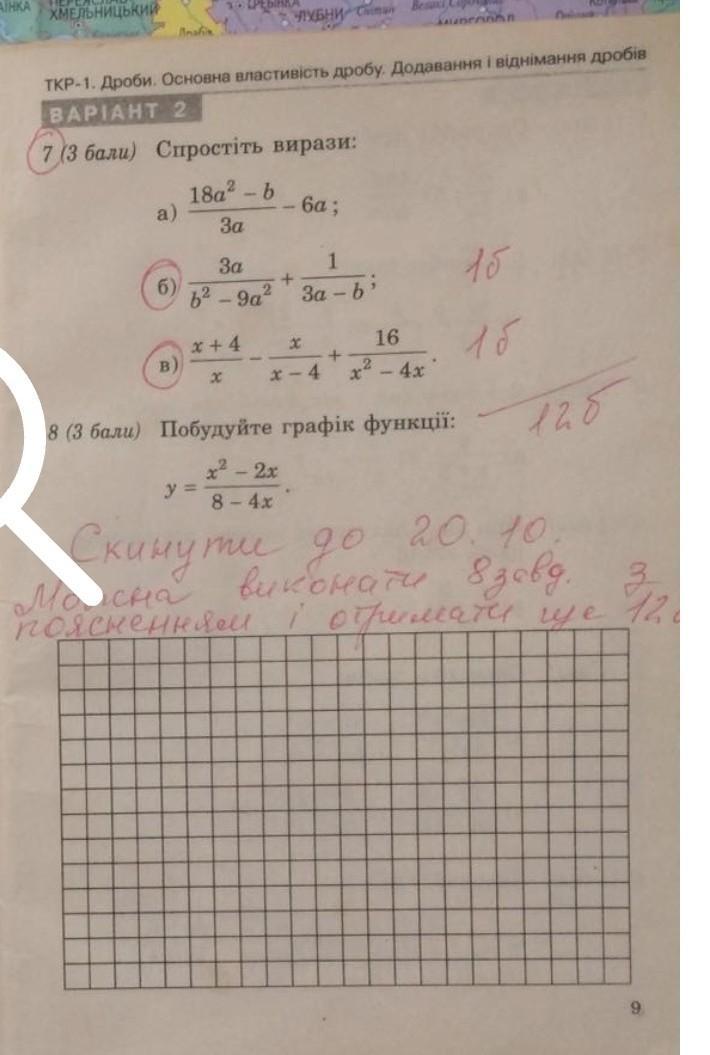 ХМЕЛЬНИЦЬКИЙ
ЛУБНИ
МИРГОРОД
ТКР-1. Дроби. Основна властивість дробу. Додавання і віднімання дробів
ВАРІАНТ 2
7 (3 бали) Спростіть вирази:
а) (18a² − b)/(3a) − 6a;
б) (3a)/(b² − 9a²) + 1/(3a − b); 1б
в) (x + 4)/x − x/(x − 4) + 16/(x² − 4x). 1б
12б
8 (3 бали) Побудуйте графік функції:
y = (x² − 2x)/(8 − 4x).
Скинути до 20.10.
Можна виконати 8 завд. з
поясненням і отримати ще 12б
9